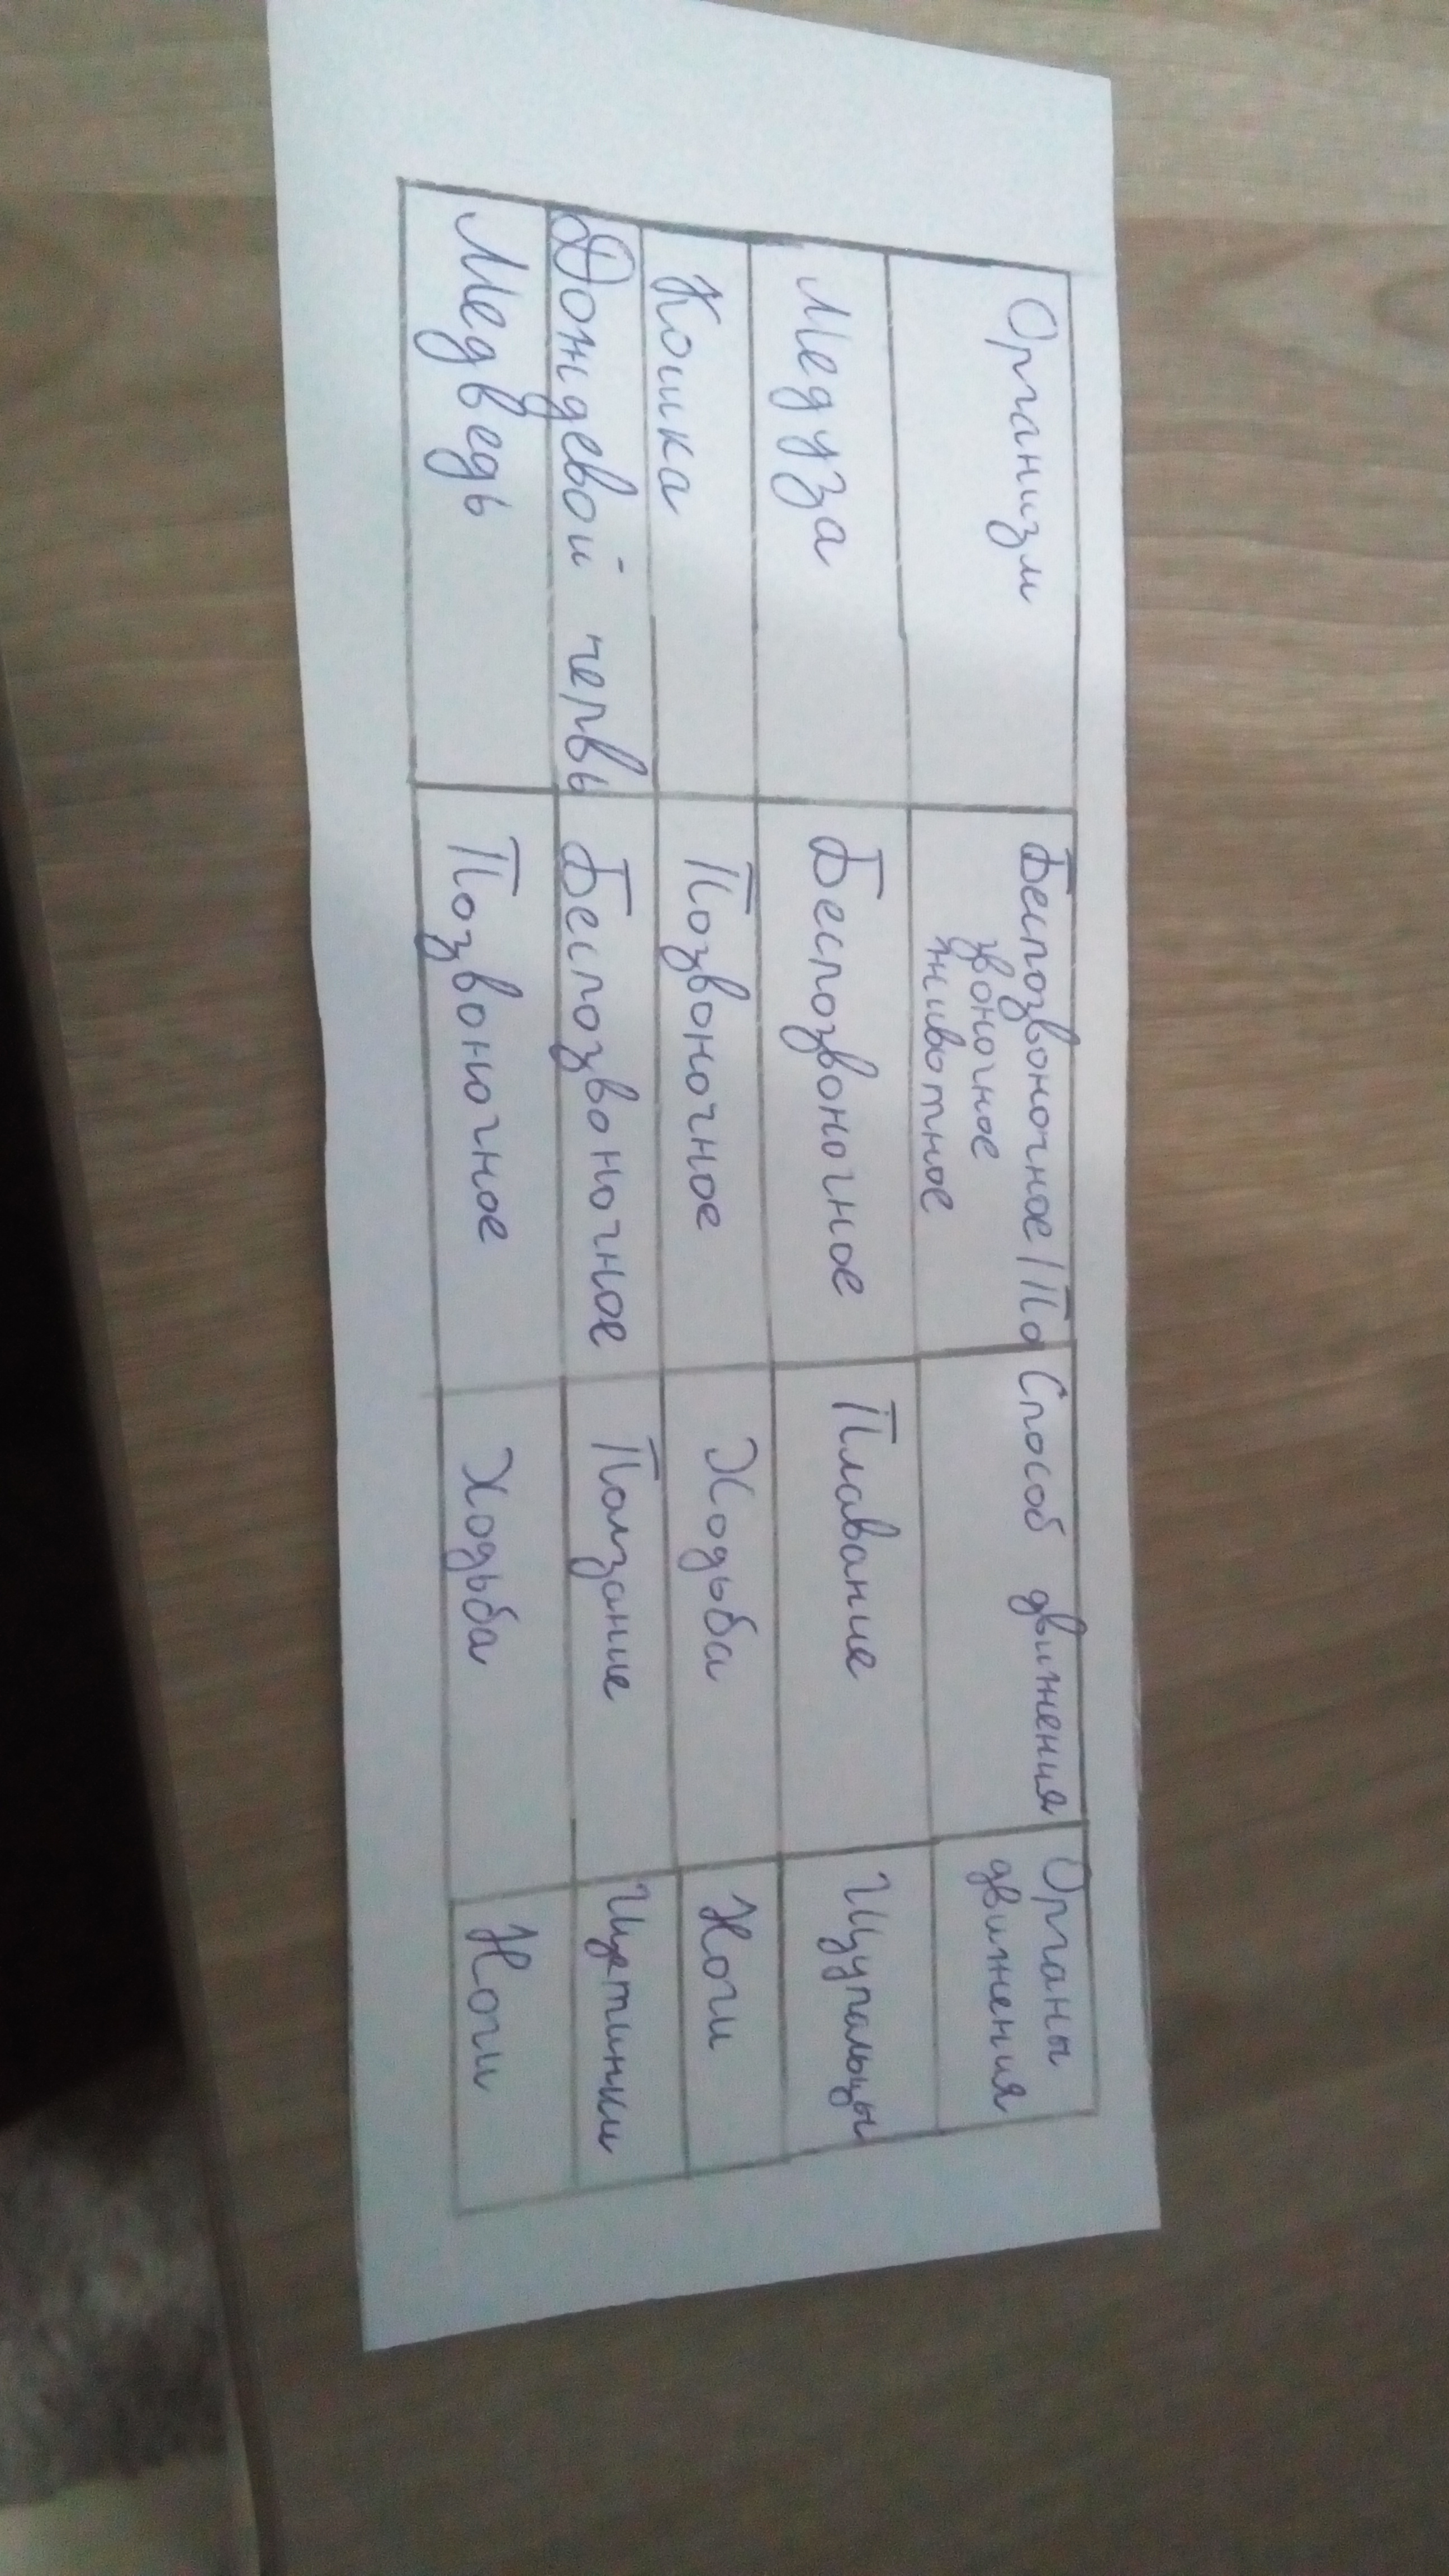 Организм Беспозвоночное/По Способ движения Органы
звоночное движения
животное
Медуза Беспозвоночное Плавание Щупальцы
Кошка Позвоночное Ходьба Ноги
Дождевой червь Беспозвоночное Ползание Щетинки
Медведь Позвоночное Ходьба Ноги